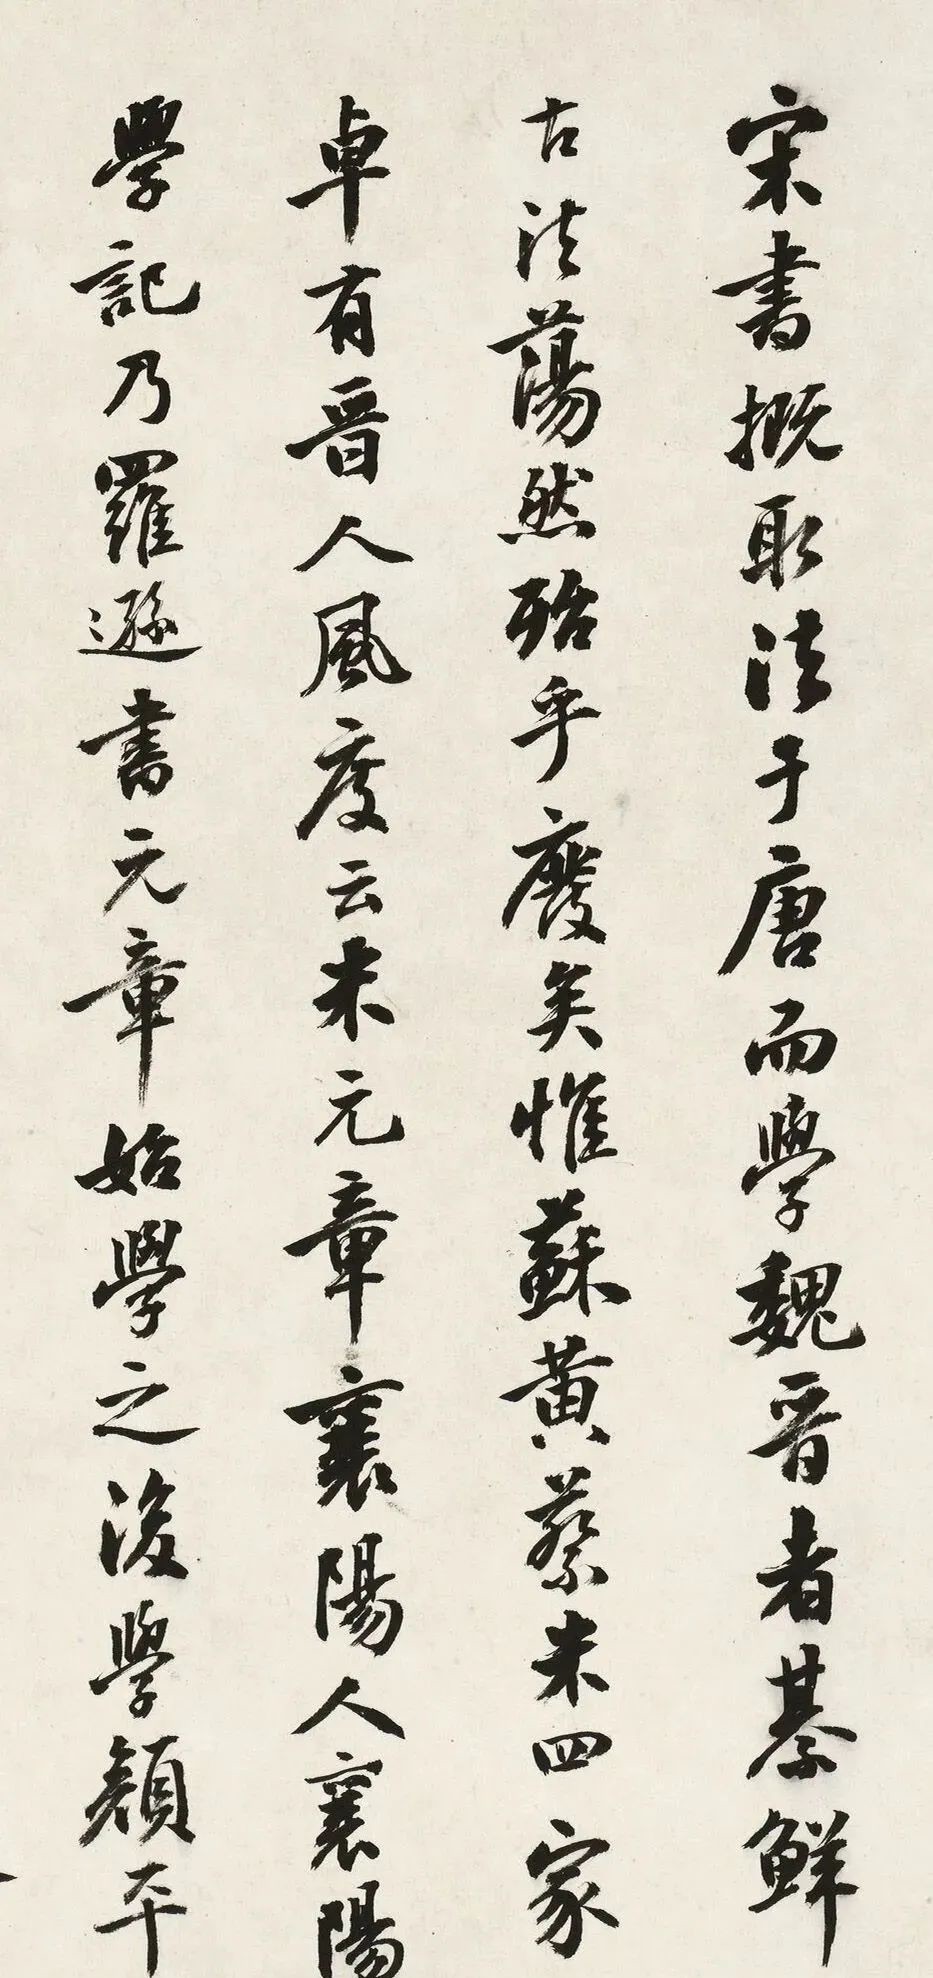 宋書概取法于唐而學魏晉者綦鮮
古法蕩然殆乎廢矣惟蘇黃蔡米四家
卓有晉人風度云米元章襄陽人襄陽
學記乃羅遜書元章始學之後學顏平